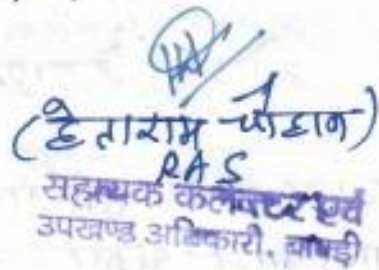 (हेताराम चौहान)
RAS
सहायक कलेक्टर एवं
उपखण्ड अधिकारी,